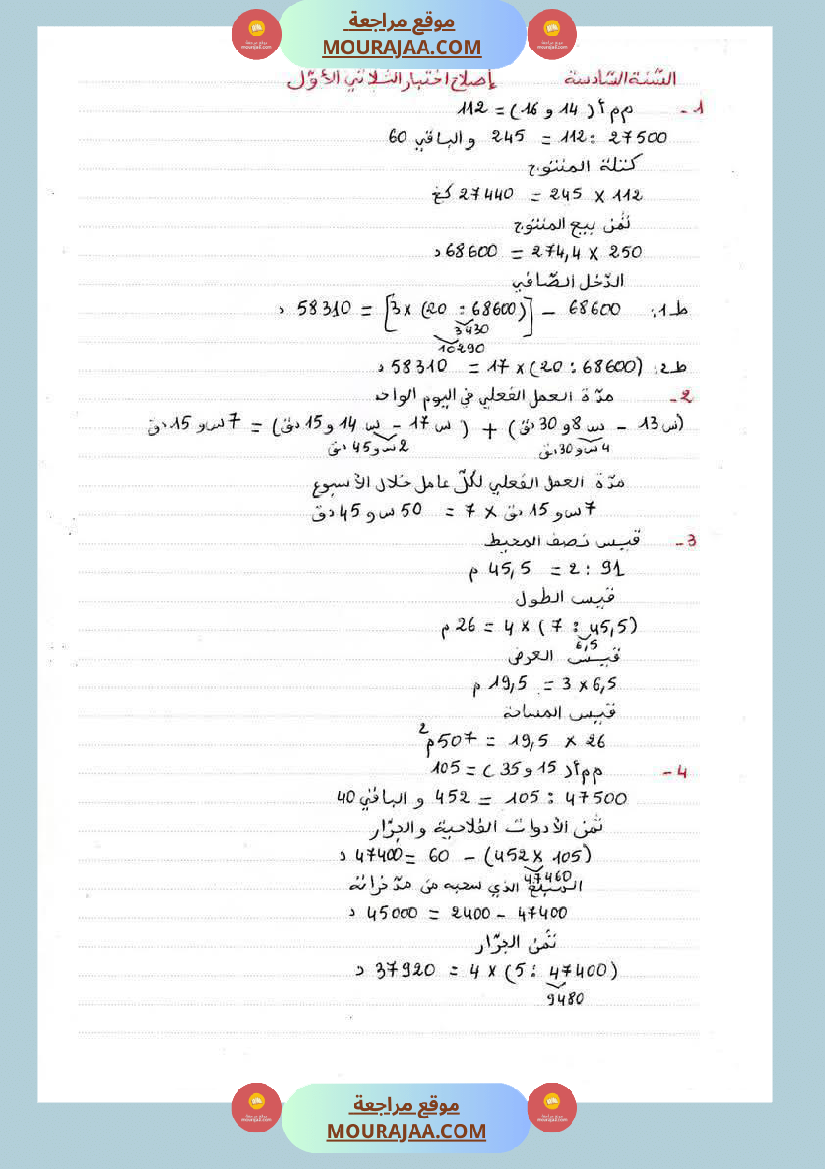 موقع مراجعة
MOURAJAA.COM
السّنة السّادسة إصلاح اختبار الثلاثي الأوّل
1- م م أ ( 14 و 16) = 112
27500 : 112 = 245 والباقي 60
كتلة المنتوج
112 × 245 = 27440 كغ
ثمن بيع المنتوج
250 × 274,4 = 68600 د
الدّخل الصّافي
ط1: 68600 – [(68600 : 20) × 3] = 58310 د
3430
10290
ط2: (68600 : 20) × 17 = 58310 د
2- مدّة العمل الفعلي في اليوم الواحد
(13 س – 8 س و 30 دق) + (17 س – 14 س و 15 دق) = 7 س و 15 دق
4 س و 30 دق 2 س و 45 دق
مدّة العمل الفعلي لكلّ عامل خلال الأسبوع
7 س و 15 دق × 7 = 50 س و 45 دق
3- قيس نصف المحيط
91 : 2 = 45,5 م
قيس الطول
(45,5 : 7) × 4 = 26 م
6,5
قيس العرض
6,5 × 3 = 19,5 م
قيس المساحة
26 × 19,5 = 507 م²
4- م م أ ( 15 و 35 ) = 105
47500 : 105 = 452 والباقي 40
ثمن الأدوات الفلاحية والجرّار
(105 × 452) – 60 = 47400 د
47460
المبلغ الذي سحبه من مدّخراته
47400 – 2400 = 45000 د
ثمن الجرّار
(47400 : 5) × 4 = 37920 د
9480
موقع مراجعة
MOURAJAA.COM